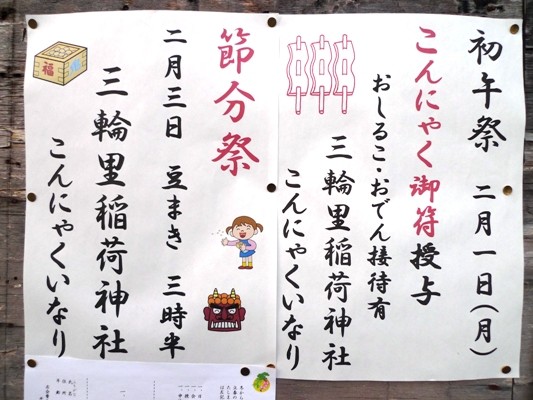 初午祭 二月一日(月)
こんにゃく御符授与
おしるこ・おでん接待有
三輪里稲荷神社
こんにゃくいなり
節分祭
二月三日 豆まき 三時半
三輪里稲荷神社
こんにゃくいなり
福